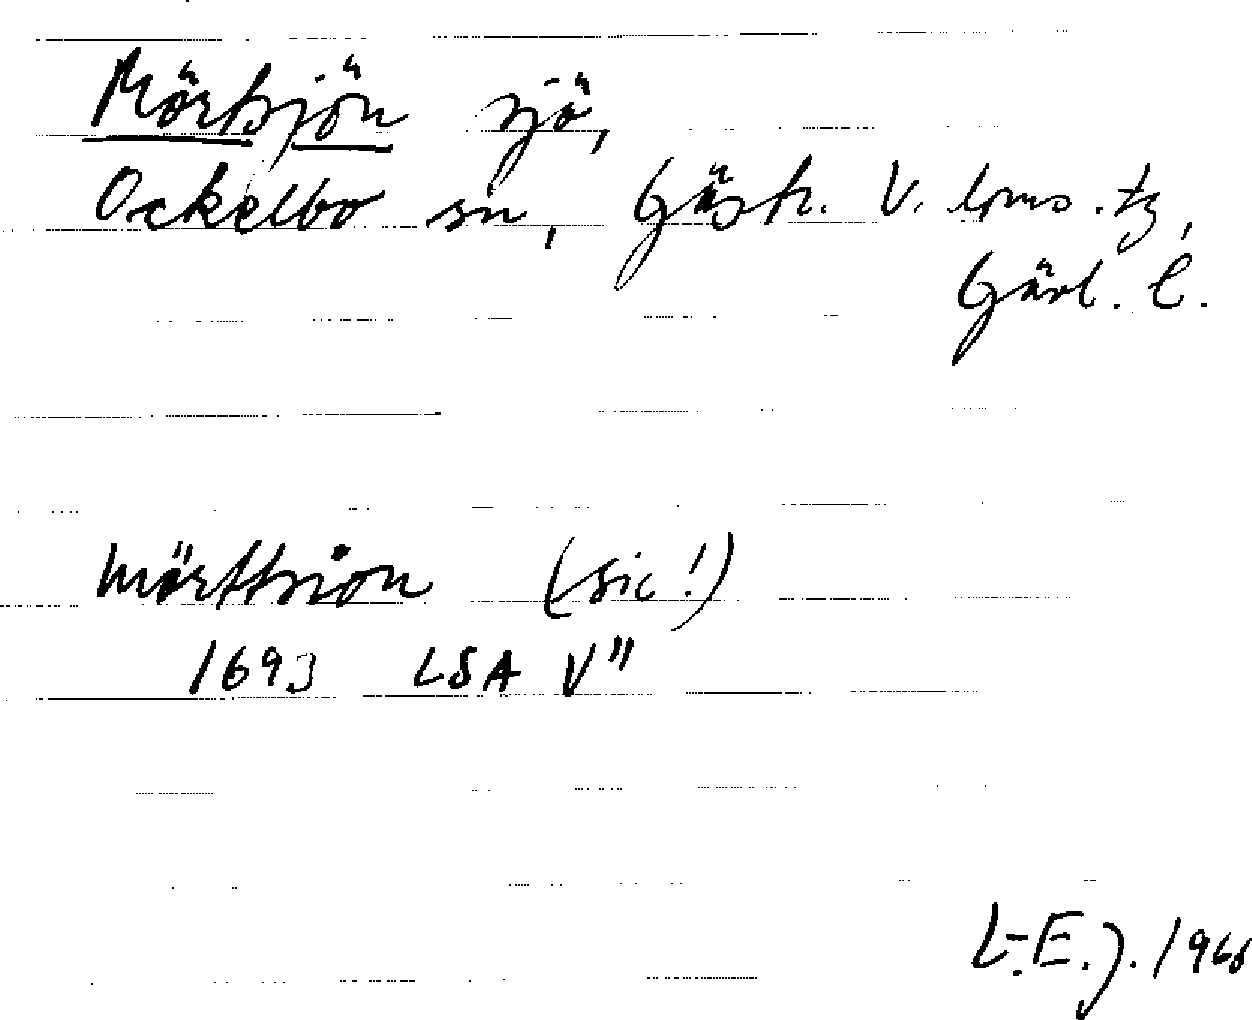 Mörtsjön sjö,
Ockelbo sn, Gästr. V. tg,
Gävl. l.
Mörttsion (sic!)
1693 LSA V"
L.-E. J. 1968